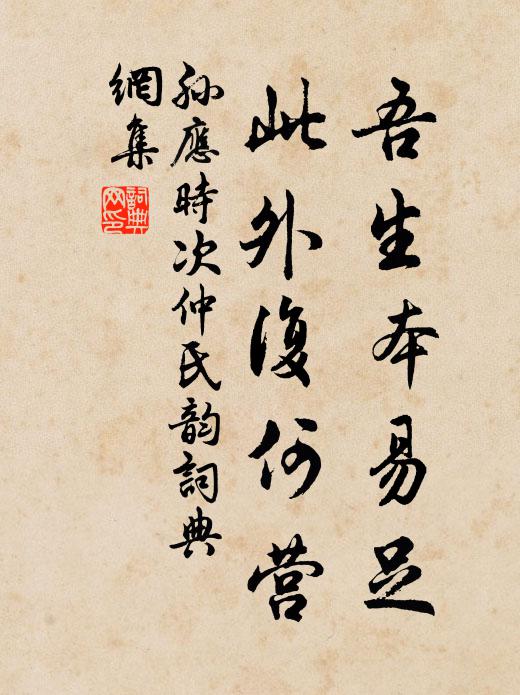 吾生本易足
此外復何营
孙應時次仲氏韵詞典
網集
詞典網印